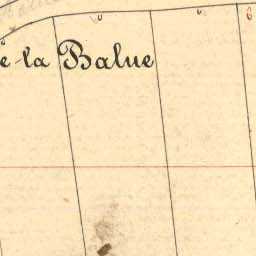 é-la Balue